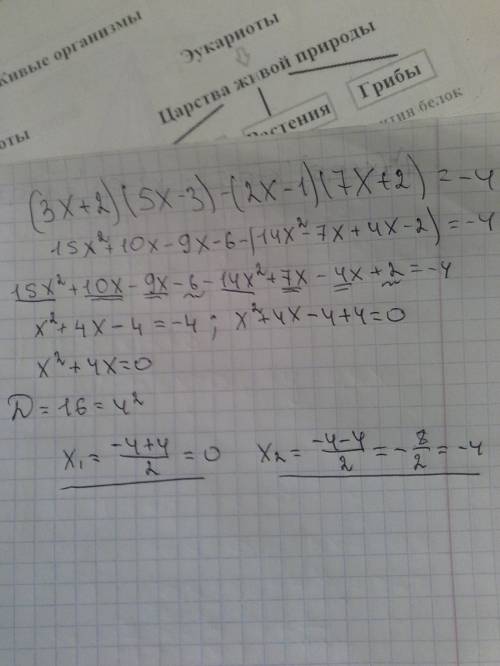 Живые организмы
Эукариоты
Царства живой природы
Грибы
Растения
белок
(3x+2)(5x-3)-(2x-1)(7x+2)=-4
15x²+10x-9x-6-(14x²-7x+4x-2)=-4
15x²+10x-9x-6-14x²+7x-4x+2=-4
x²+4x-4=-4; x²+4x-4+4=0
x²+4x=0
D=16=4²
x₁=\frac{-4+4}{2}=0 x₂=\frac{-4-4}{2}=-\frac{8}{2}=-4